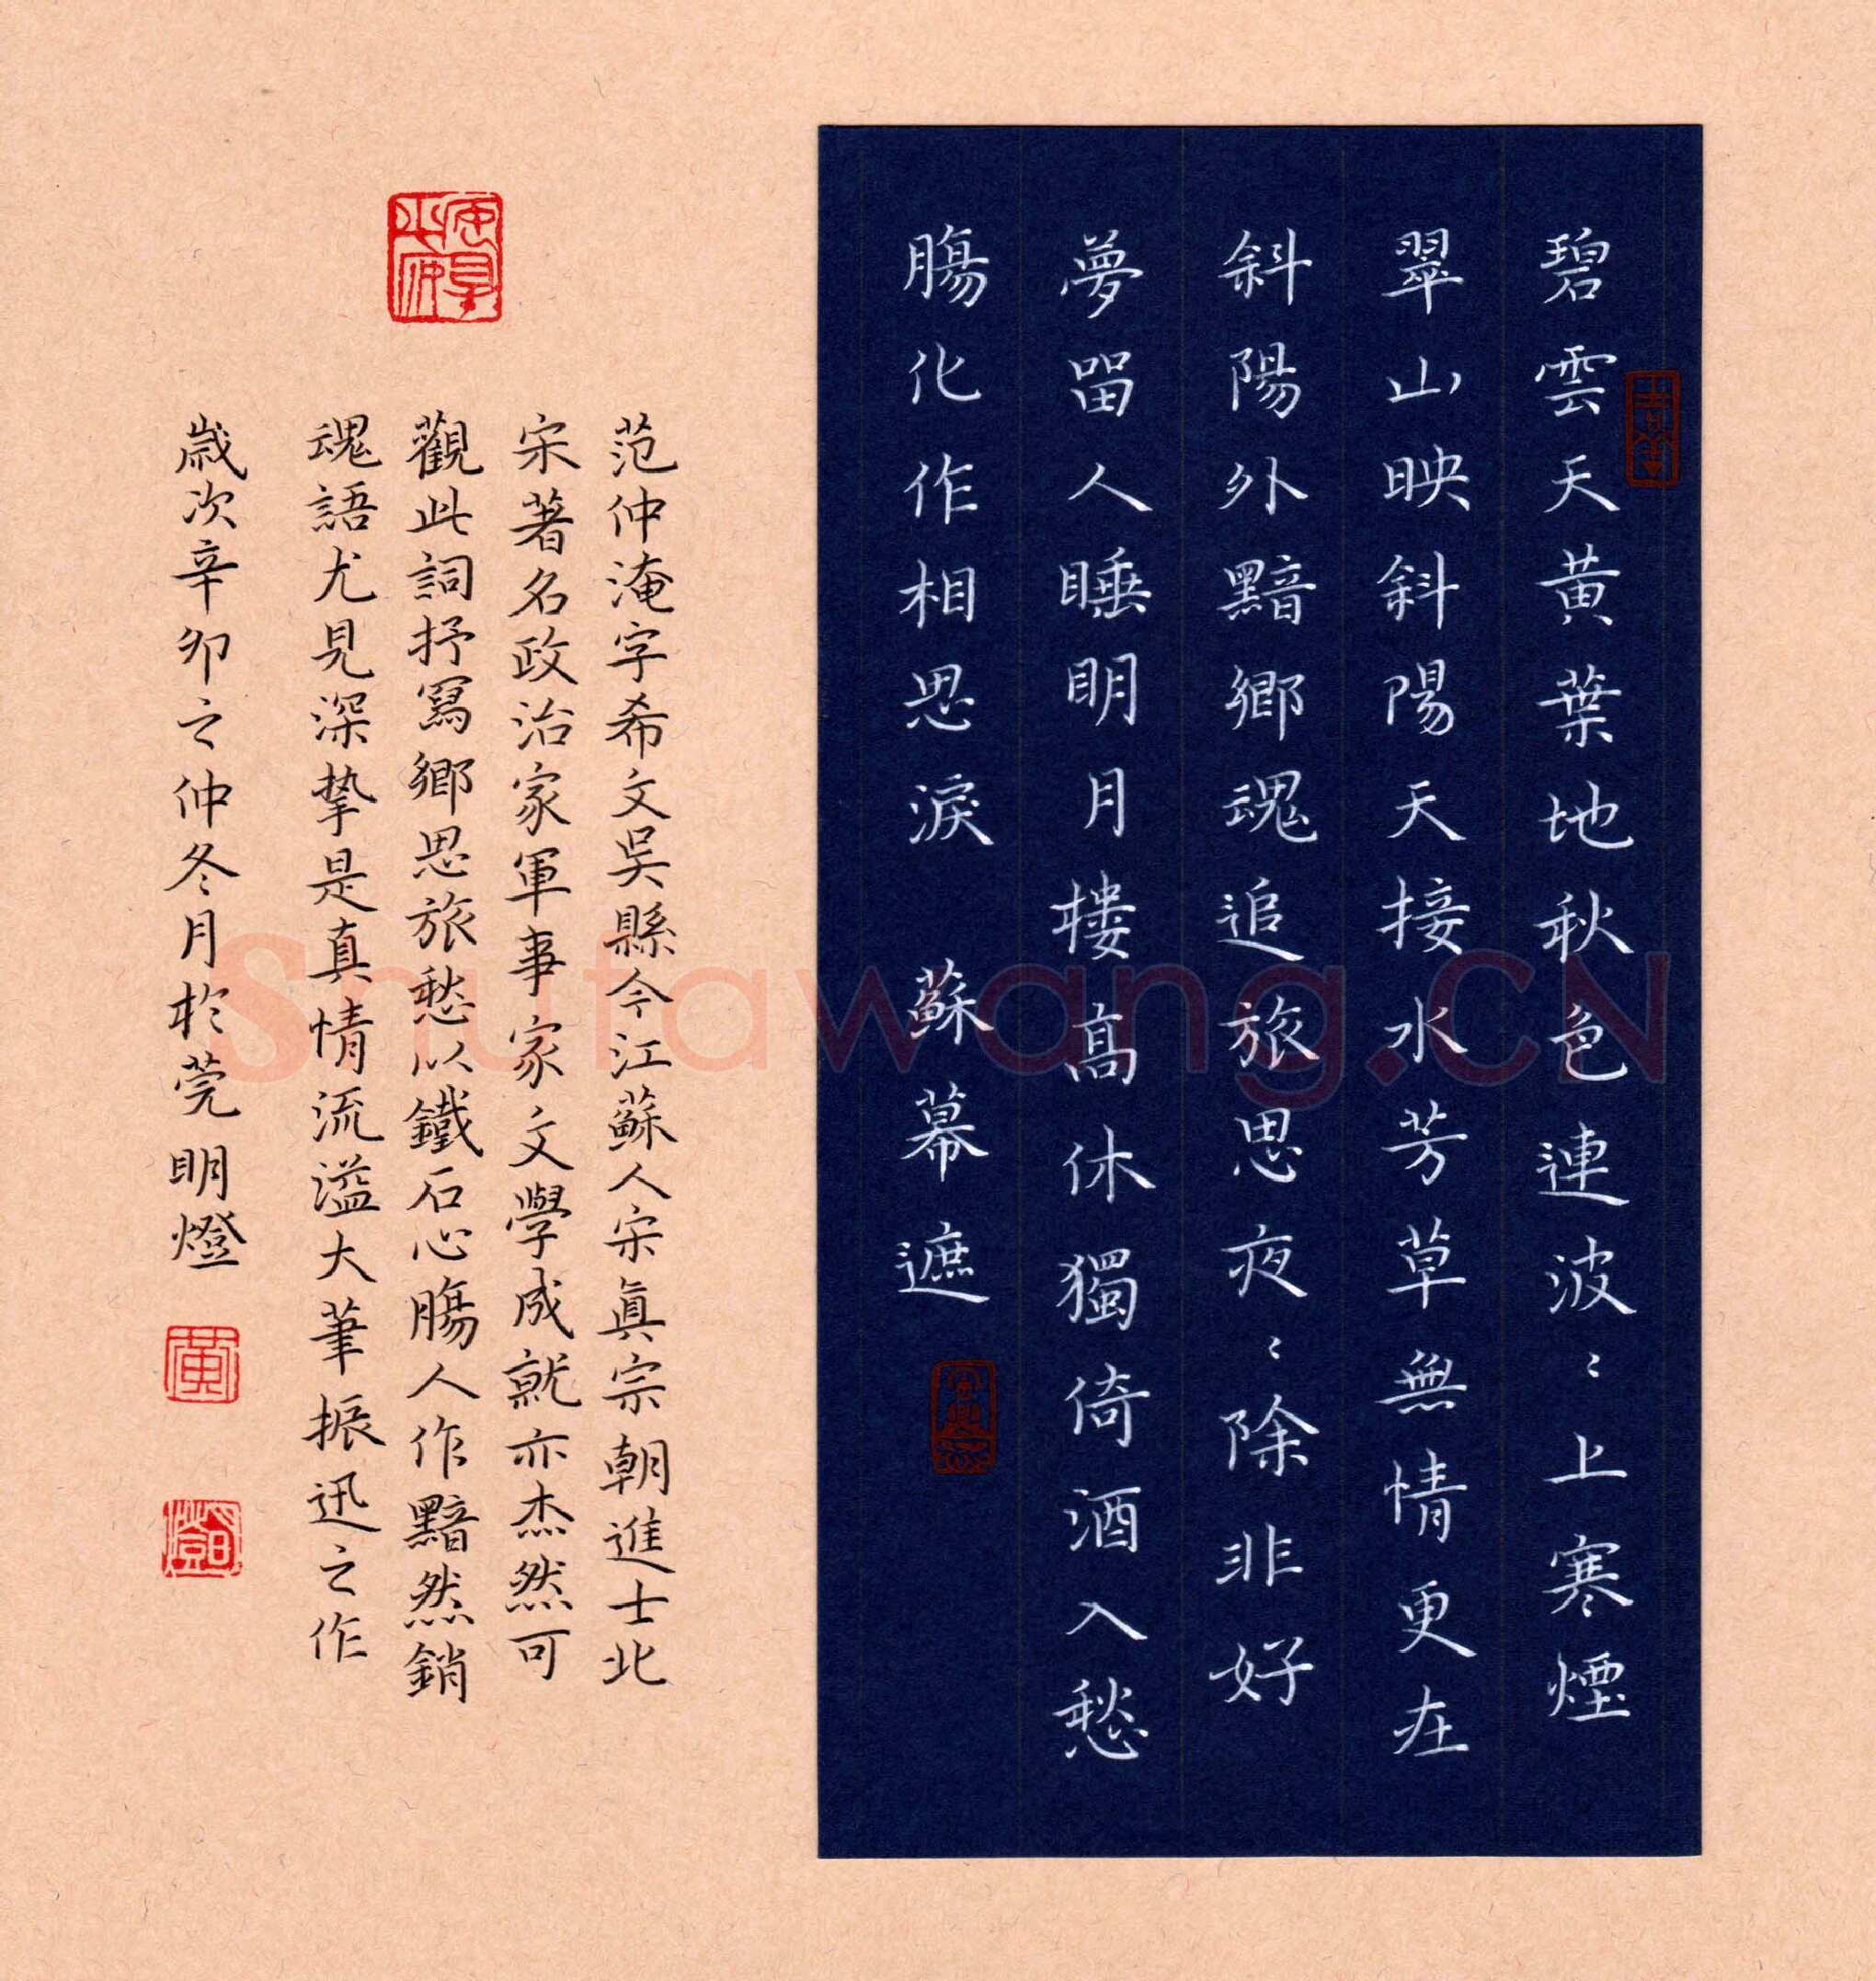 碧雲天黃葉地秋色連波〻上寒煙
翠山映斜陽天接水芳草無情更在
斜陽外黯鄉魂追旅思夜〻除非好
夢留人睡明月樓高休獨倚酒入愁
腸化作相思淚 蘇幕遮
范仲淹字希文吳縣今江蘇人宋真宗朝進士北
宋著名政治家軍事家文學成就亦杰然可
觀此詞抒寫鄉思旅愁以鐵石心腸人作黯然銷
魂語尤見深摯是真情流溢大筆振迅之作
歲次辛卯之仲冬月於莞明燈
黃
Shufawang.CN